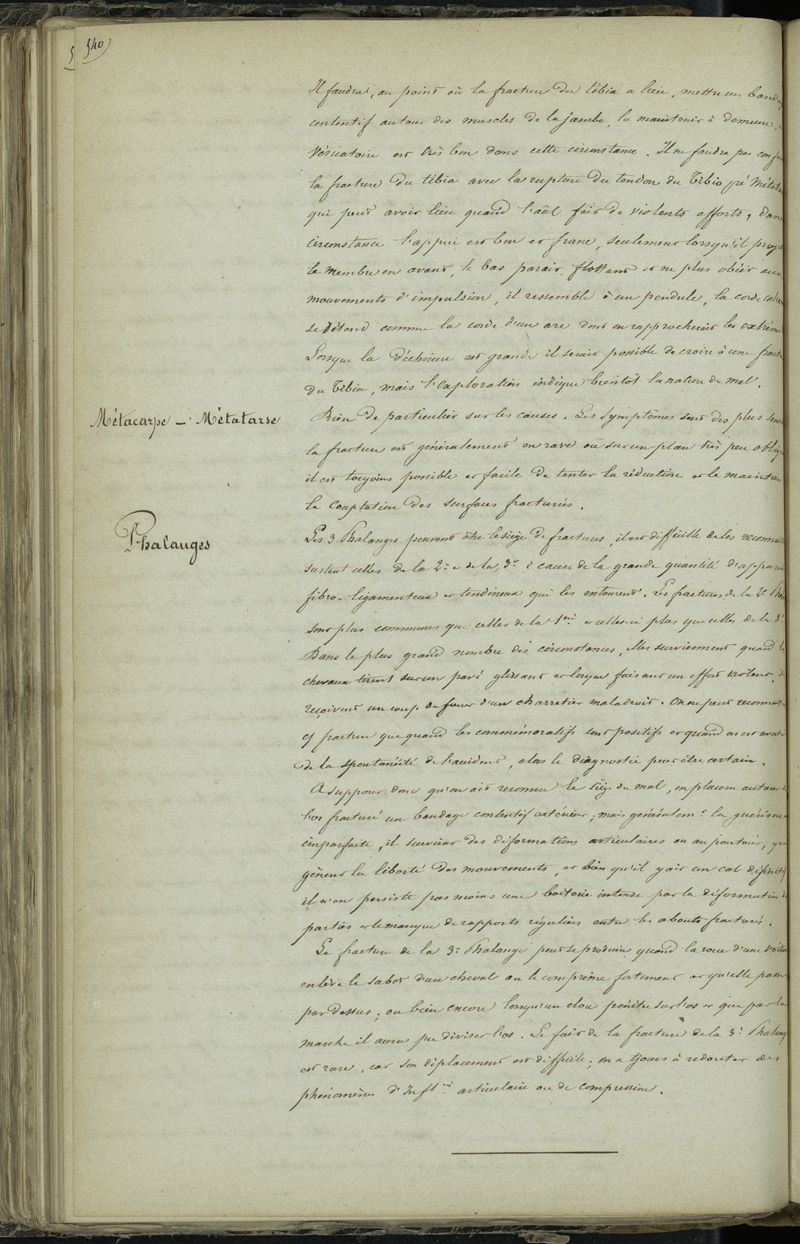 540
Il faudra, au point où la fracture du tibia a lieu, mettre un banda
contentif autour des muscles de la jambe, le maintenir à demeure,
Vésicatoire est très bon dans cette circonstance. Il ne faudra pas conf
la fracture du tibia avec la rupture du tendon du Tibio pré Métata
qui peut avoir lieu quand l'anl fait de violents efforts, dans
circonstance l'appui est bon et franc, seulement lorsqu'il proj
le membre en avant, le bas parait flottant et ne plus obéir aux
mouvements d'impulsion, il ressemble à un pendule, la corde
se détend comme la corde d'un arc dont on rapprocherait les extrém
Lorsque la déchirure est grande il serait possible de croire à une fract
du Tibia, mais l'exploration indique bientôt la nature du mal.
Métacarpe – Métatarse
Rien de particulier sur les causes. Les symptômes sont des plus
la fracture est généralement en rave ou sur un plan très peu obliq
il est toujours possible et facile de tenter la réduction et le maintien
la coaptation des surfaces fracturées.
Phalanges
Les 3 Phalanges peuvent être le siège de fractures, il est difficile de les reconnaî
surtout celles de la 2e et de la 3e à cause de la grande quantité d'appar
fibro-ligamenteux et tendineux qui les entourent. Les fractures de la 2e Pha
sont plus communes que celles de la 1ere et celles-ci plus que celles de la 3e
Dans le plus grand nombre des circonstances, elles surviennent quand l
chevaux tirent sur un pavé glissant et lorsque faisant un effort violent,
reçoivent un coup de fouet d'un charretier maladroit. On ne peut reconnaî
cj fracture que quand les commémoratifs sont positifs et quand on est
de la spontanéité de l'accident, alors le diagnostic peut être certain.
A supposer donc qu'on ait reconnu le siège du mal, on placera autour
l'os fracturé un bandage contentif extérieur; mais généralemt la guérison
imparfaite, il survient des déformations articulaires ou au pourtour, qu
gênent la liberté des mouvements, et bien qu'il y ait un cal définitif
il n'en persiste pas moins une boiterie intense par la déformation
parties et le manque de rapports réguliers entre les abouts fracturés.
La fracture de la 3e Phalange peut se produire quand la roue d'une voiture
enlève le sabot d'un cheval ou le comprime fortement et qu'elle passe
par dessus; ou bien encore lorsqu'un clou pénètre sur l'os et que par la
marche il aura pu diviser l'os. Le fait de la fracture de la 3e Phalang
est rare, car son déplacement est difficile; on a tjours à redouter des
phénomènes d'Inflon articulaire ou de compression.